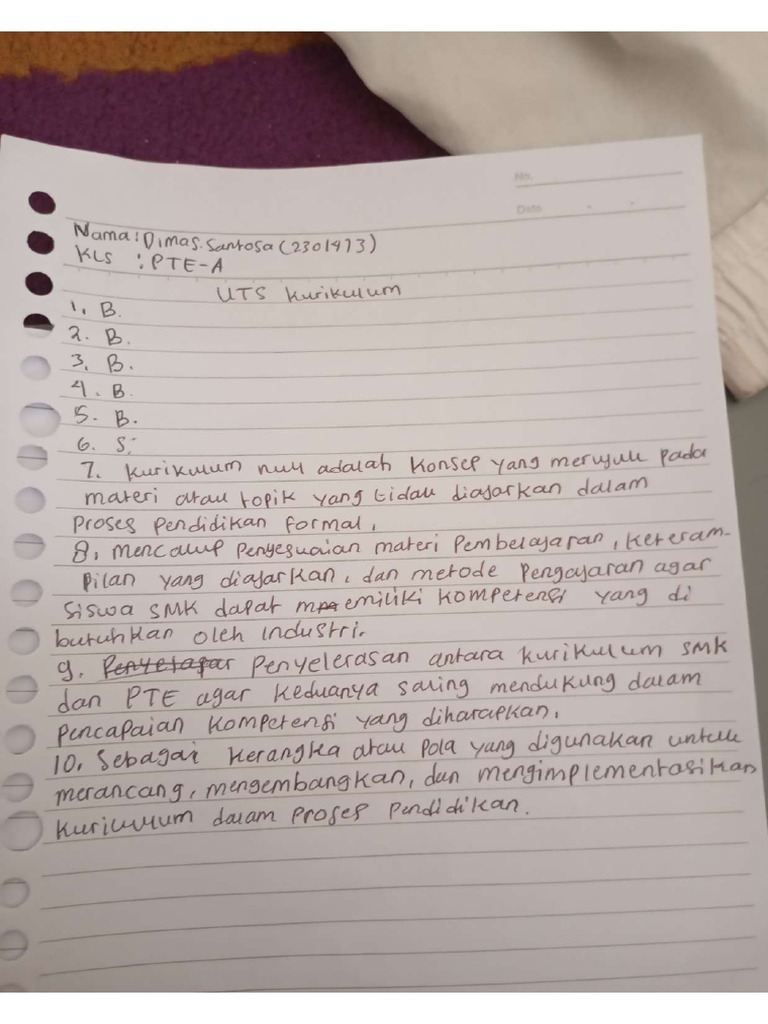 No.
Date
Nama : Dimas. Santosa (2301473)
KLS : PTE-A
UTS Kurikulum
1. B.
2. B.
3. B.
4. B.
5. B.
6. S.
7. Kurikulum null adalah Konsep yang merujuk pada
materi atau topik yang tidak diajarkan dalam
proses pendidikan formal.
8. mencakup penyesuaian materi pembelajaran, keteram-
pilan yang diajarkan, dan metode pengajaran agar
siswa SMK dapat memiliki kompetensi yang di
butuhkan oleh industri.
9. Penyetapar Penyelerasan antara kurikulum SMK
dan PTE agar keduanya saling mendukung dalam
pencapaian kompetensi yang diharapkan.
10. Sebagai kerangka atau pola yang digunakan untuk
merancang, mengembangkan, dan mengimplementasikan
kurikulum dalam proses pendidikan.